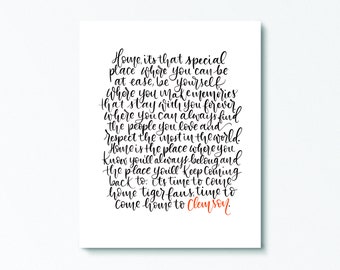 Home, its that special
place where you can be
at ease, be yourself
where you make memories
that stay with you forever
where you can always find
the people you love and
respect the most in the world.
Home is the place where you
know you'll always belong and
the place you'll keep coming
back to. it's time to come
home tiger fans, time to
come home to Clemson.